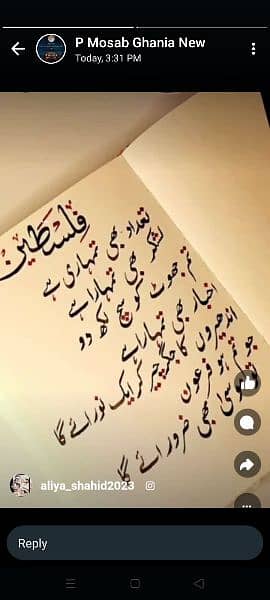 P Mosab Ghania New
Today, 3:31 PM
فلسطین
تعداد بھی تمہاری ہے
لشکر بھی تمہارا ہے
تم جھوٹ کو سچ لکھ دو
اخبار بھی تمہارا ہے
اندھیروں کا جگر چیر کر ایک نور ائے گا
جو تم ہو فرعون
موسیٰ بھی ضرور ائے گا
aliya_shahid2023
Reply